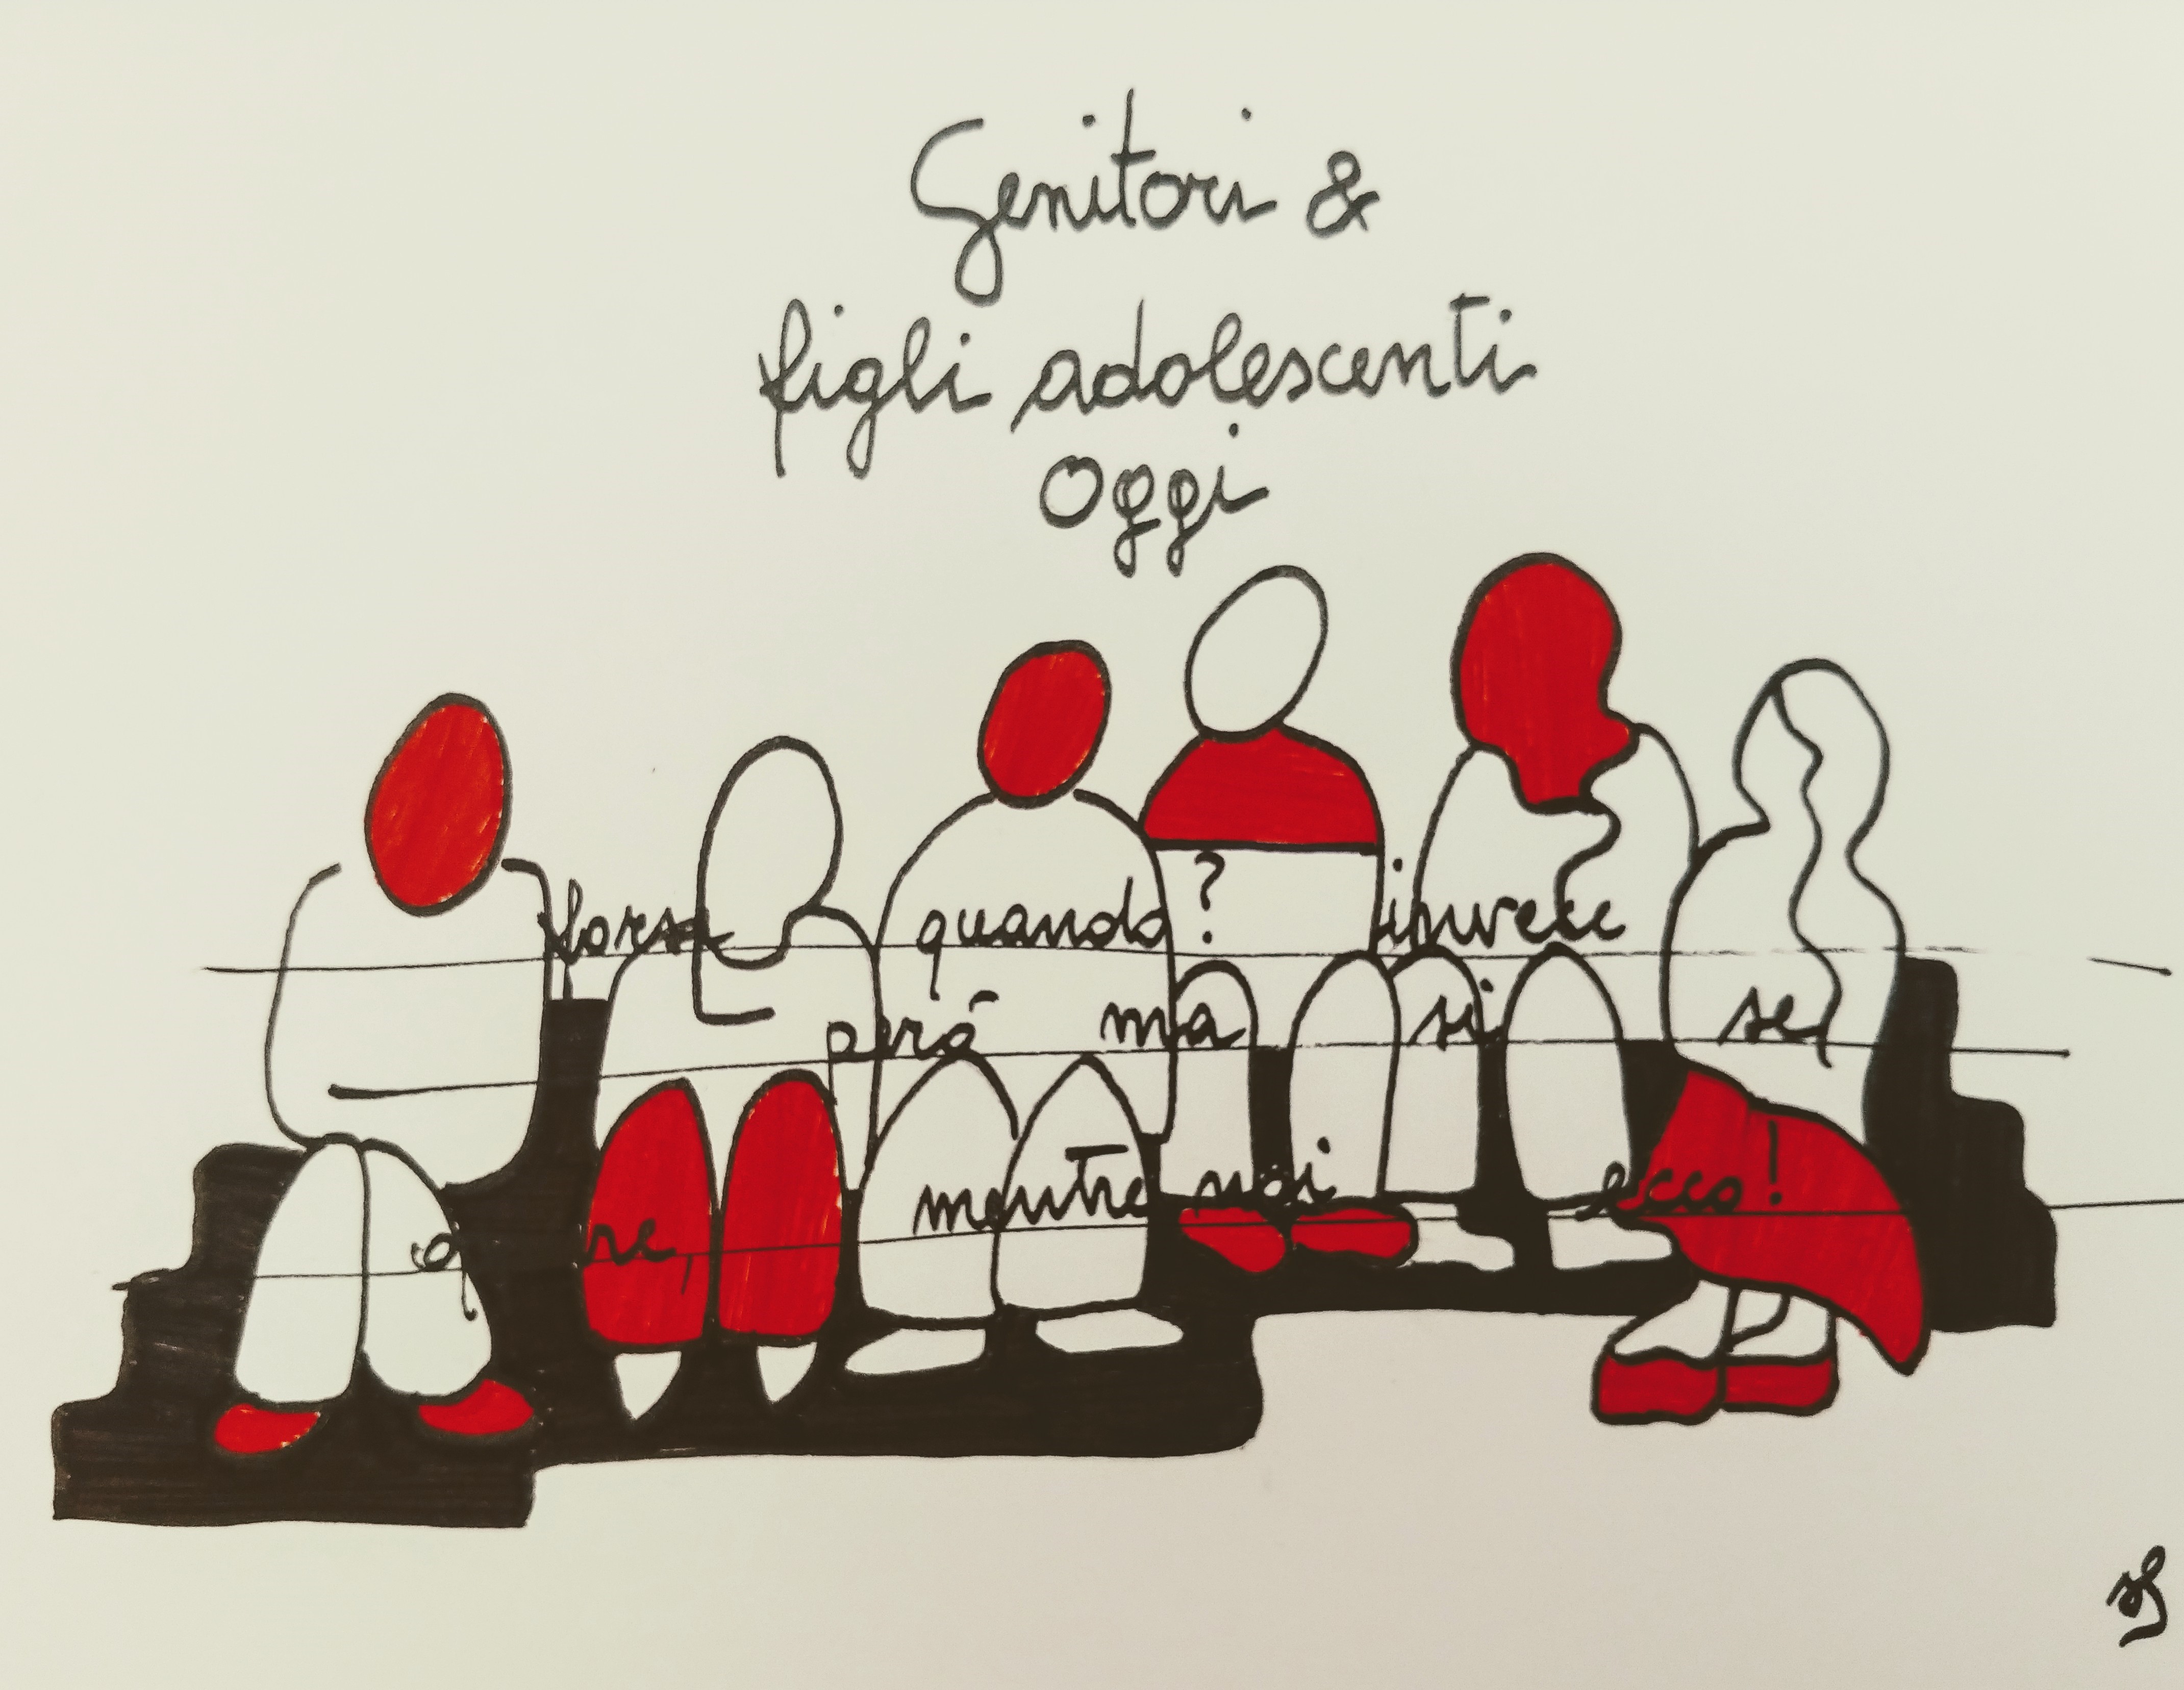 Genitori &
figli adolescenti
Oggi
forse quando? invece
però ma si se
mentre noi ecco!